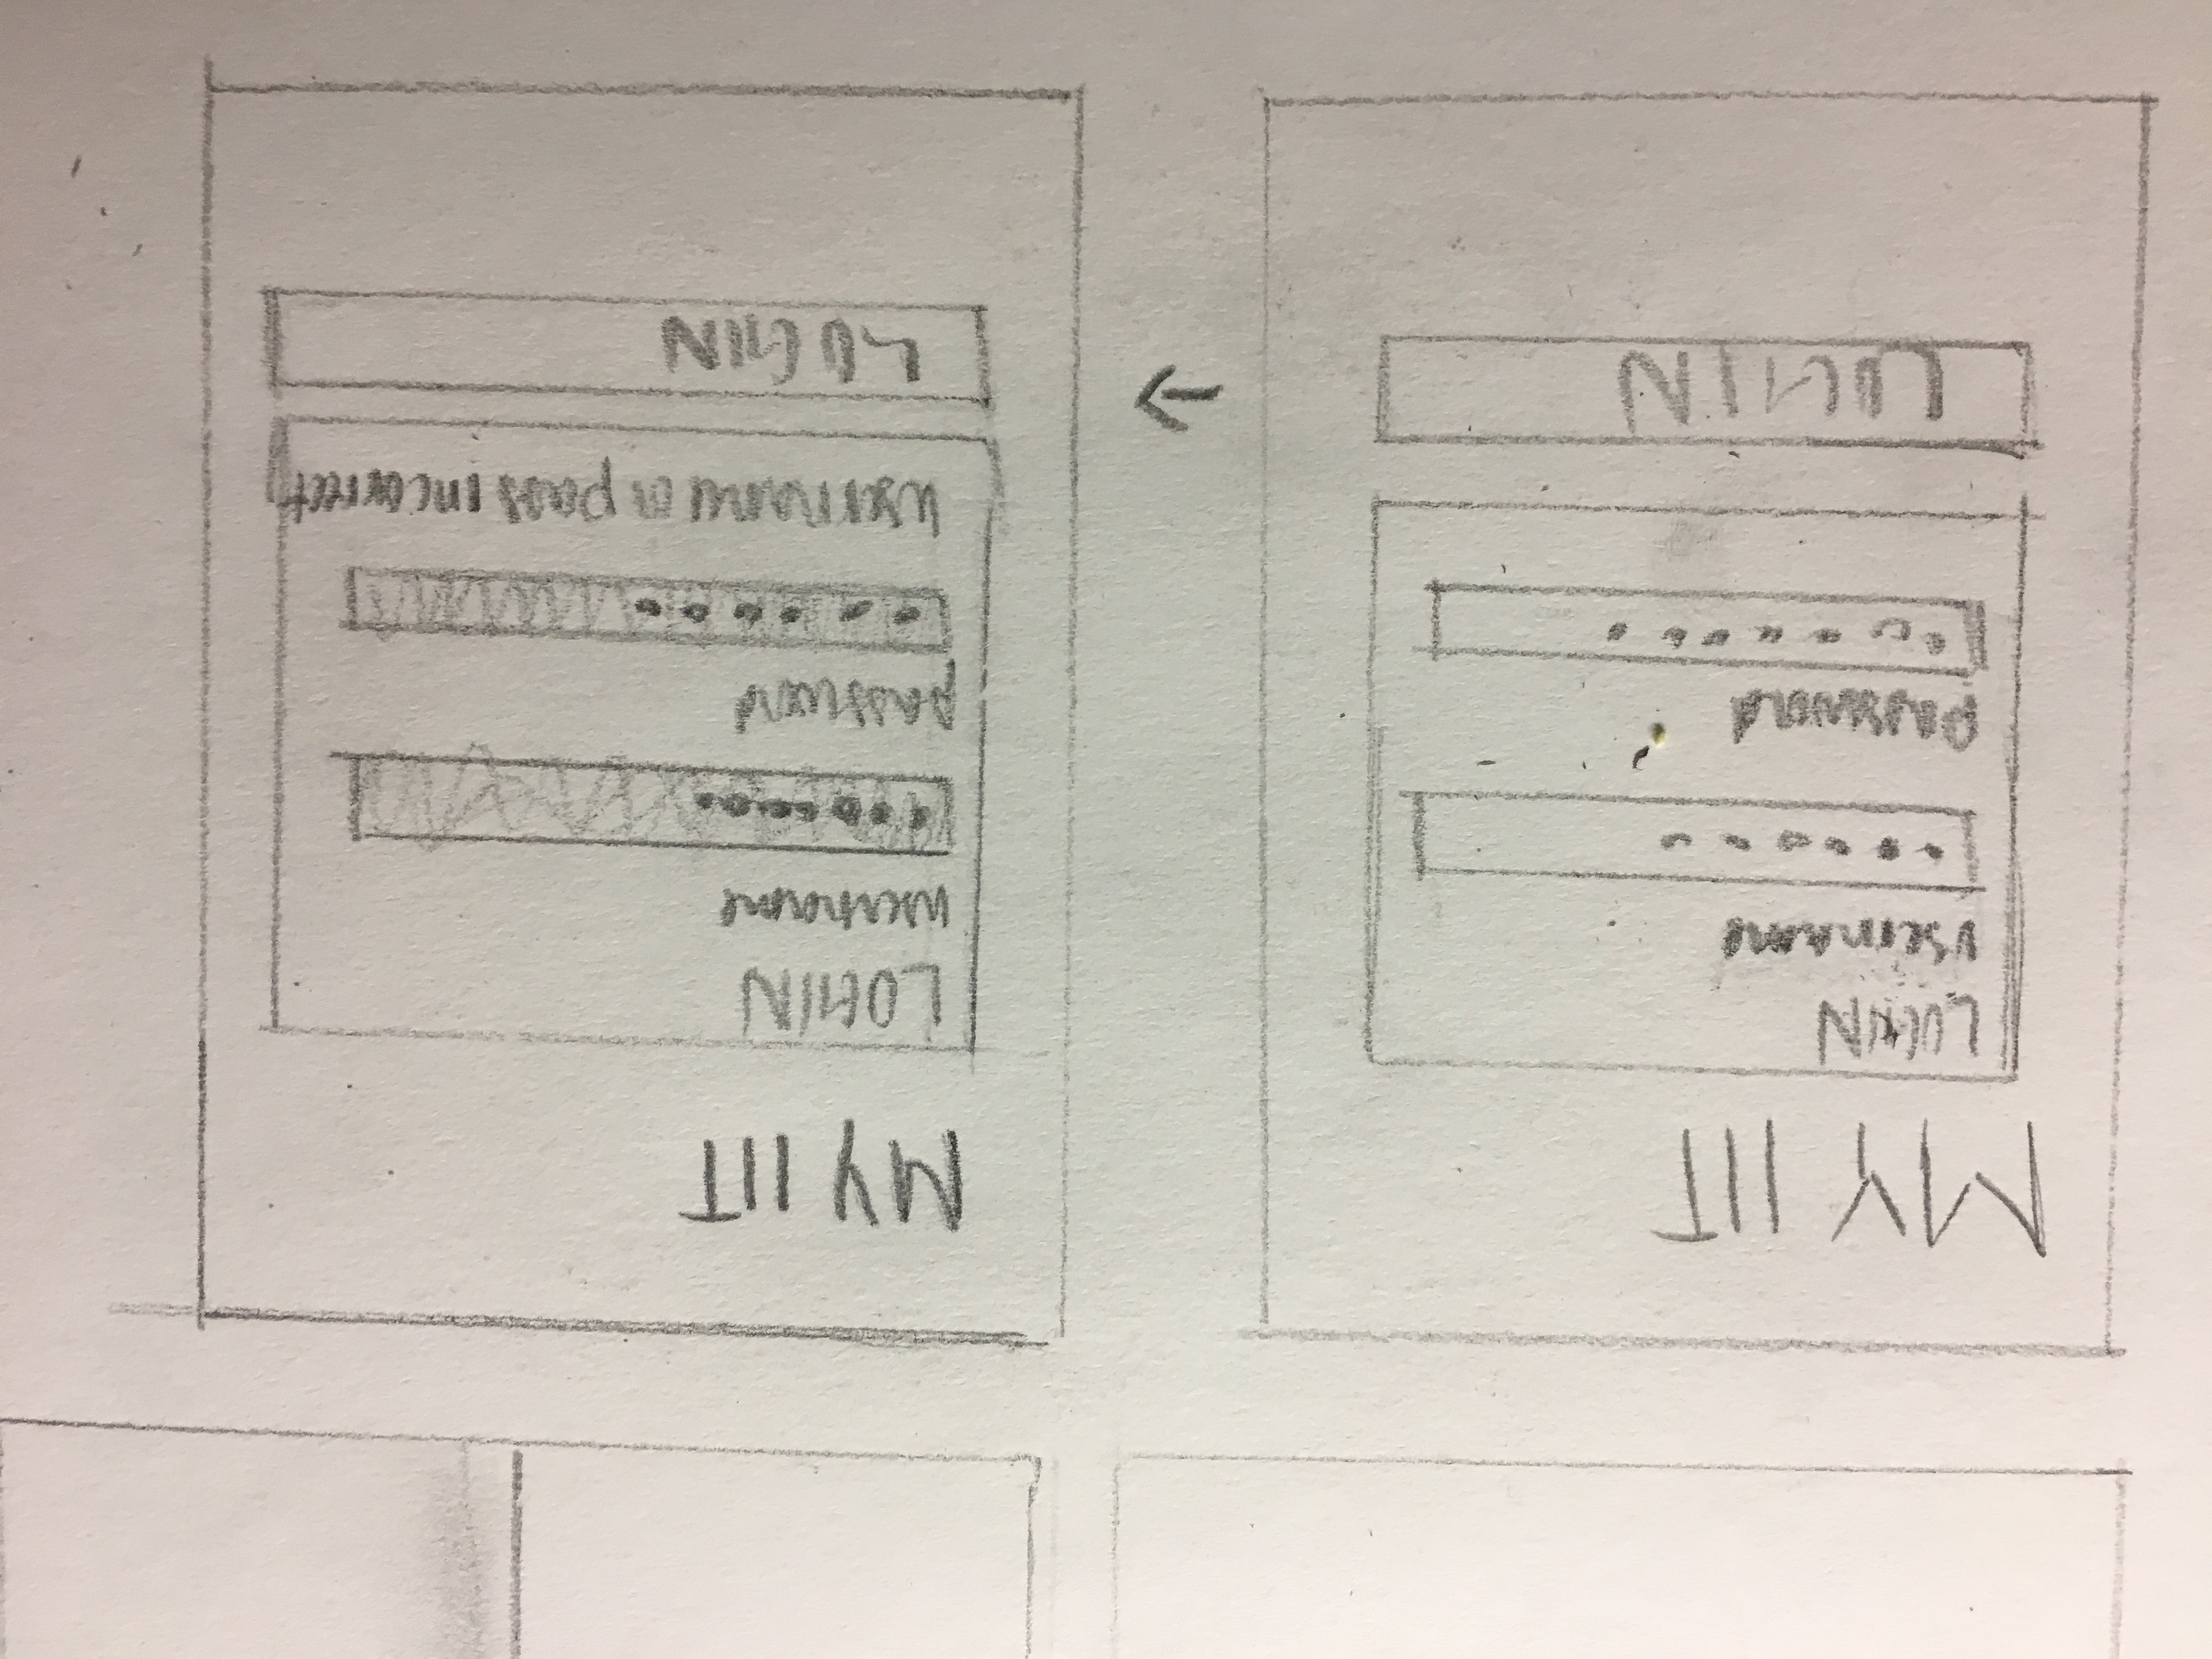 MY IIT
LOGIN
username
password
LOGIN
MY IIT
LOGIN
username
password
username or pass incorrect
LOGIN